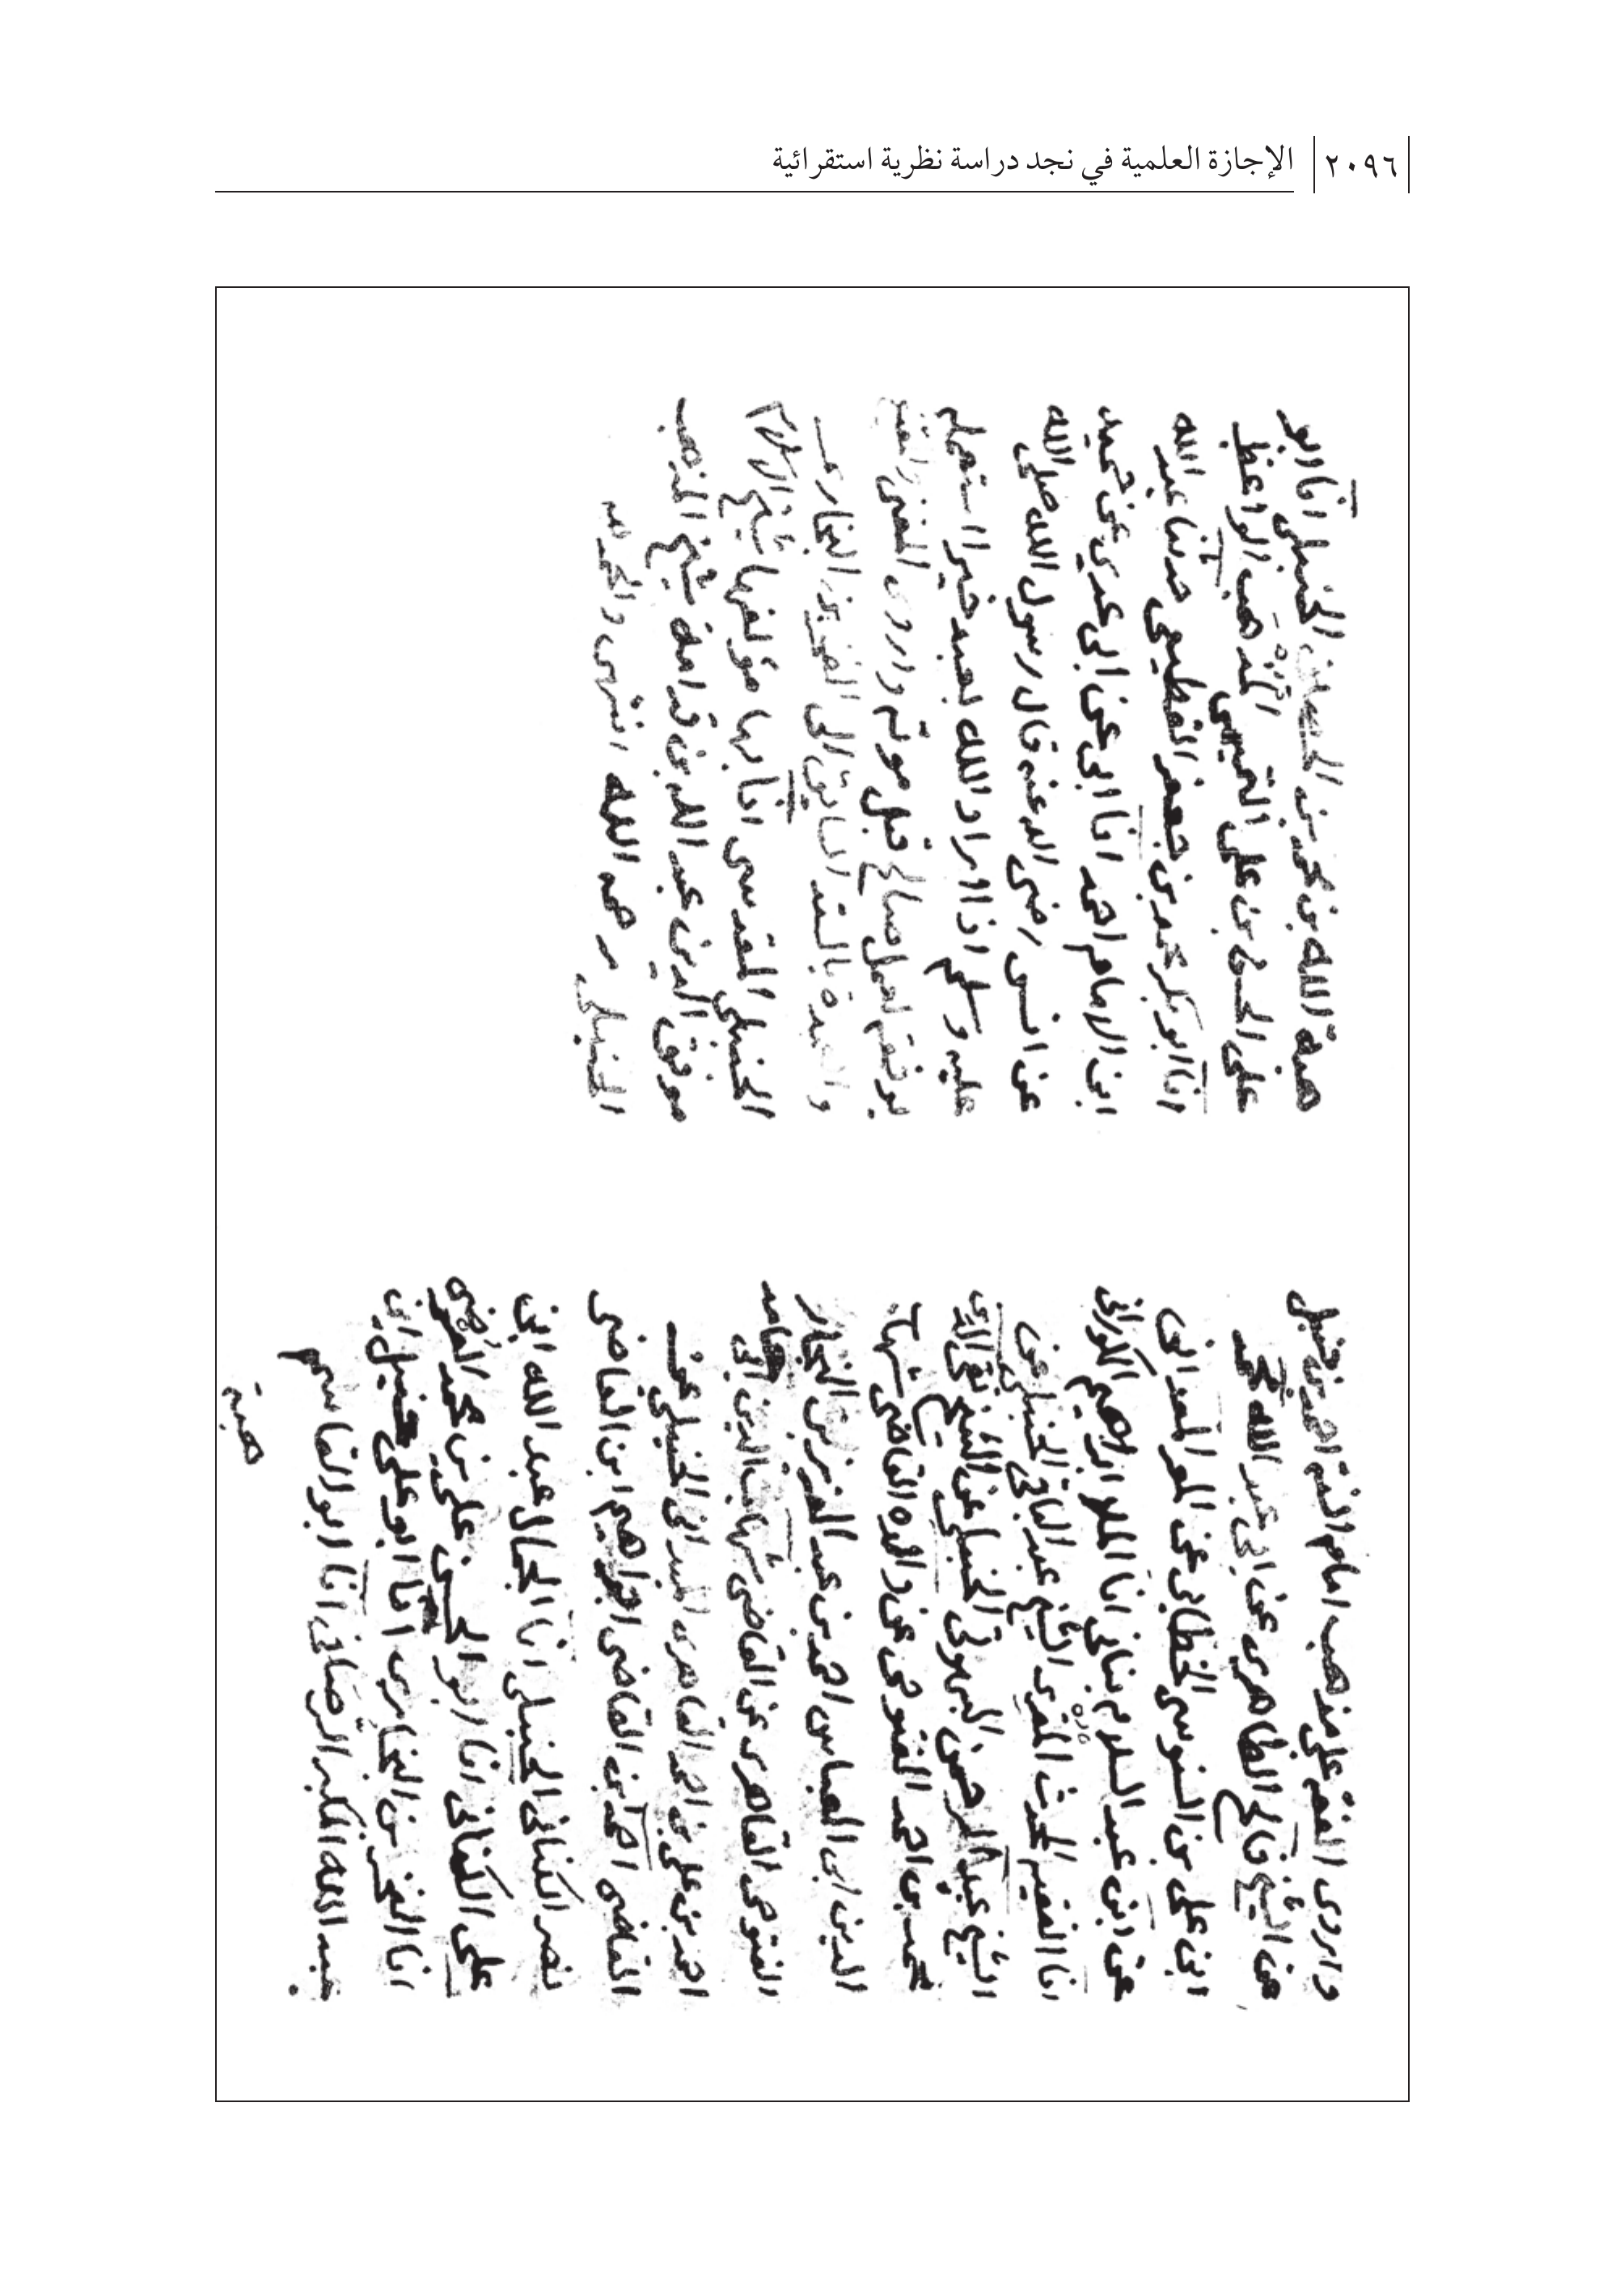 ٢٠٩٦ الإجازة العلمية في نجد دراسة نظرية استقرائية
واروى الفقه على مذهب امام السنة احمد بن حنبل
عن الشيخ فالح الظاهري عن ابي عبد الله محمد
ابن علي بن السنوسي الخطابي عن المعمر
عن ابن عبد السلام بناني انا الملا ابراهيم الكوراني
انا الفقيه المحدث المقرى الشيخ عبد الباقي الحنبلي عن
الشيخ عبد الرحمن البهوتي الحنبلي عن الشيخ تقي الدين
محمد بن احمد الفتوحي عن والده القاضي شهاب
الدين ابي العباس احمد بن عبد العزيز بن النجار
الفتوحي القاهري عن القاضي شهاب الدين ابي حامد
احمد بن علي بن احمد القاهرى الميداني الحنبلي عن
القاضى احمد بن القاضى ابراهيم ابن القاضى
نصر الكناني الحنبلي انا الجمال عبد الله ابن
على الكناني انا ابو الحسن علي بن محمد العرضى
انا الفخر بن البخارى انا ابو على حنبل ابن
عبد الله المكبر الرصافى انا ابو القاسم
هبة
هبة الله بن محمد بن الحصين الحنبلي انا ابو
على الحسن بن على التميمى المذهب الواعظ
انا ابو بكر محمد بن جعفر القطيعى حدثنا عبد الله
ابن الامام احمد انا ابى عن ابي عدي عن حميد
عن انس رضى الله عنه قال رسول الله صلى الله
عليه وسلم اذا اراد الله بعبد خيرا استعمله
يوفقه لعمل صالح قبل موته واروى المغنى والمقنع
والعمدة بالسند السابق الى الفخر بن البخارى
الحنبلى المقدسى انا بها مؤلفها شيخ الاسلام
موفق الدين عبد الله بن قدامة شيخ المذهب
الحنبلى رحمه الله انتهى والحمد لله